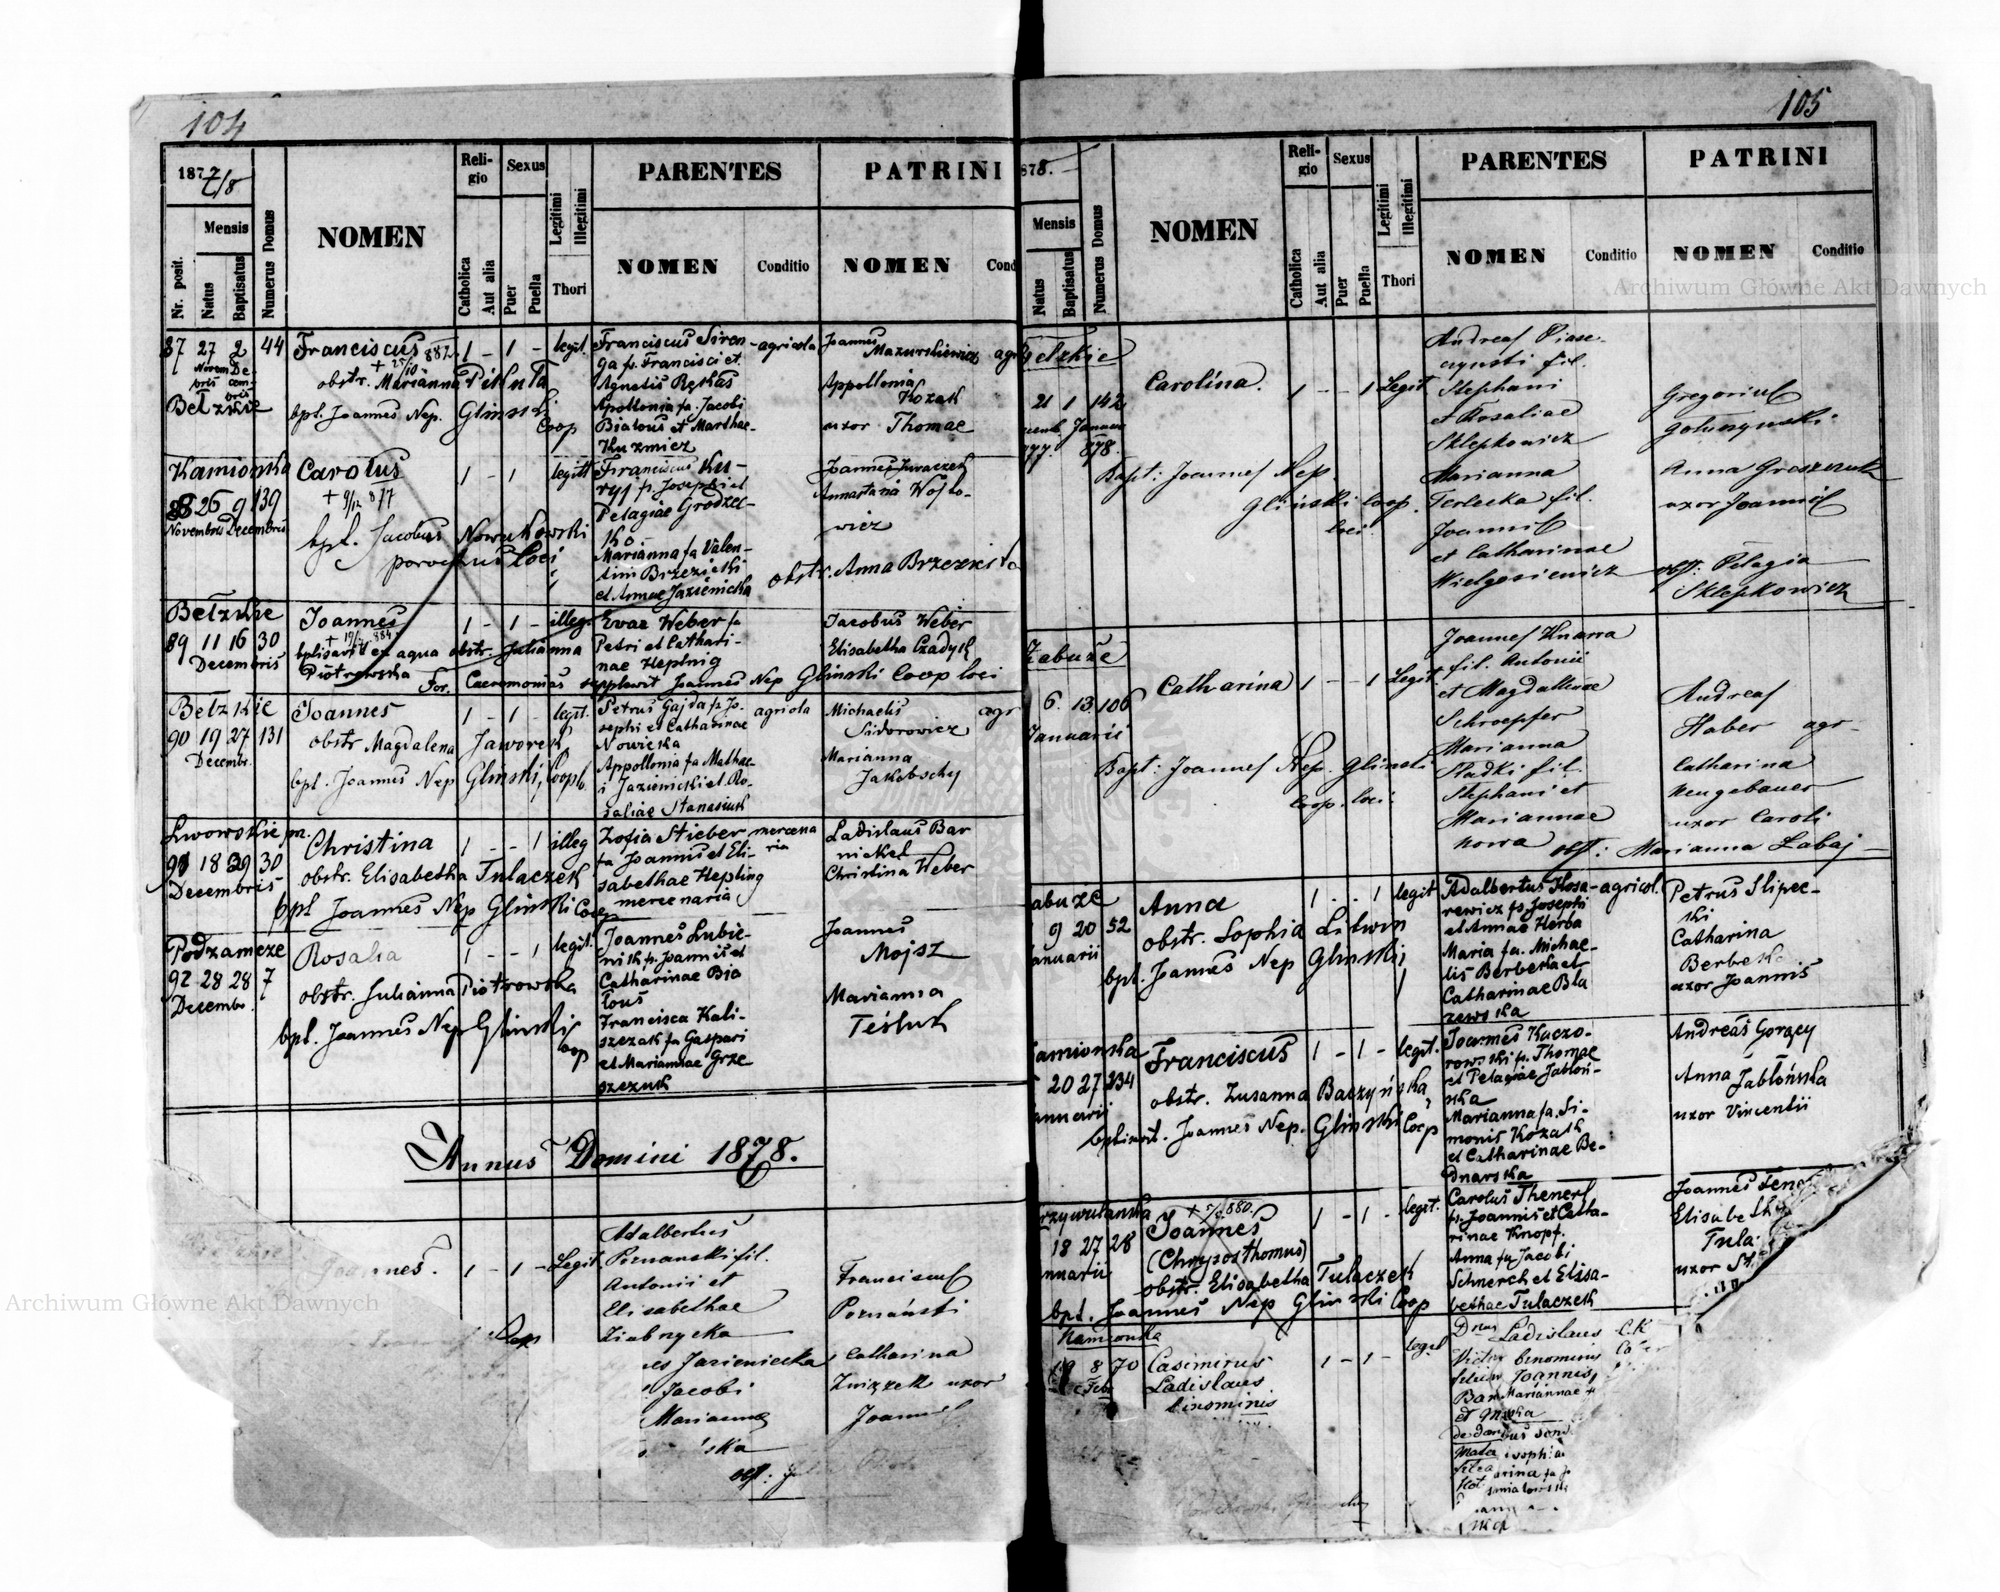 104
187 7/8
Nr. posit.
Mensis
Natus
Baptisatus
Numerus Domus
NOMEN
Reli-
gio
Catholica
Aut alia
Sexus
Puer
Puella
Legitimi
Illegitimi
Thori
PARENTES
NOMEN
Conditio
PATRINI
NOMEN
Cond
87 27 2 44
Novem De-
bris cem-
bris
Betzkie
Franciscus 882
+ 25/10
obstr. Marianna Pikuta
bpt. Joannes Nep. Glinski
Coop
1 - 1 - legit.
Franciscus Siren-
ga fs. Francisci et
Agnetis Rękas
Apollonia fa. Jacobi
Białous et Marthae
Kuzmicz
agricola
Joannes
Mazurkiewicz agr
Appollonia
Kozak
uxor Thomae
Kamionka
88 26 9 139
Novembris Decembris
Carolus
+ 9/12 877
bpt. Jacobus Nowakowski
parochus loci
1 - 1 legitt
Franciscus Ku-
ryj fs. Josephi et
Pelagiae Grodzec-
ka
Marianna fa Valen-
tini Brzezicki
et Annae Jazienicka
Joannes Juraczek
Annastazia Wojto-
wicz
obstr. Anna Brzezicka
Betzkie
89 11 16 30
Decembris
Joannes
+ 19/2 884
bptisavit ex aqua obstr. Julianna
Piotrowska For. Caeremonias supplevit Joannes Nep Glinski Coop loci
1 - 1 - illeg.
Evae Weber fa
Petri et Cathari-
nae Hepting
Jacobus Weber
Elisabetha Czadyk
Betzkie
90 19 27 131
Decembr.
Joannes
obstr Magdalena Jaworek
bpt. Joannes Nep Glinski, Coopl.
1 - 1 - legit.
Petrus Gajda fs Jo-
sephi et Catharinae
Nowicka
Appollonia fa Mathae-
i Jazienicki et Ro-
zaliae Stanasiuk
agriola
Michaelis
Sidorowicz
agr
Marianna
Jakobschy
Lwowskie pr.
91 18 29 30
Decembris
Christina
obstr. Elisabetha Tulaczek
bpt Joannes Nep Glinski Coop
1 - - 1 illeg
Zofia Stieber
fa Joannis et Eli-
sabethae Hepting
mercenaria
mercena
ria
Ladislaus Bar
nickel
Christina Weber
Podzamcze
92 28 28 7
Decembr.
Rosalia
obstr. Julianna Piotrowska
bpt. Joannes Nep Glinski
Coop
1 - - 1 legit.
Joannes Lubie-
nik fs. Joannis et
Catharinae Bia
lous
Francisca Kali-
szczak fa Gaspari
et Mariannae Grze
szczuk
Joannes
Mojsz
Marianna
Teśluk
Annus Domini 1878.
Joannes.
1 - 1 - Legit
Coop
Adalbertus
Poznanski fil.
Antonii et
Elisabethae
Ziabrycka
Jazieniecka
Jacobi
Marianna
Franciscus
Poznański
Catharina
Związek uxor
Joannes
105
878.
Mensis
Natus
Baptisatus
Numerus Domus
NOMEN
Reli-
gio
Catholica
Aut alia
Sexus
Puer
Puella
Legitimi
Illegitimi
Thori
PARENTES
NOMEN
Conditio
PATRINI
NOMEN
Conditio
Betzkie
21 1 142
Januar
77 878.
Carolina.
Bapt: Joannes Nep.
Gliński Coop.
loci.
1 - - 1 Legit
Andreas Piase-
cynski fil.
Stephani
et Rosaliae
Sklepkowicz
Marianna
Terlecka fil.
Joannis
et Catharinae
Wielgosiewicz
Gregorius
Gołuzynski.
Anna Graszczuk
uxor Joannis
obst: Pelagia
Sklepkowicz
Zabuże
6. 13. 106
Januarii
Catharina
Bapt: Joannes Nep. Glinski
Coop. loci.
1 - - 1 Legit.
Joannes Knara
fil. Antonii
et Magdalenae
Schroepfer
Marianna
Sladki fil.
Stephani et
Mariannae
nowa
Andreas
Haber agr-
Catharina
Neugebauer
uxor Caroli
obst: Marianna Labaj
abuze
9 20 52
anuarii
Anna
obstr. Sophia Litwin
bpt. Joannes Nep Glinski
1 - - 1 legit
Adalbertus Kosa-
rewicz fs. Josephi
et Annae Herba
Maria fa. Michae-
lis Berbeka et
Catharinae Bla
zewska
agricol.
Petrus Slipec-
ki
Catharina
Berbeka
uxor Joannis
amionka
20 27 234
anuarii
Franciscus
obstr. Zusanna Baczyńska
bptisvit. Joannes Nep. Glinski Coop
1 - 1 - legit.
Joannes Kaczo-
rowski fs. Thomae
et Pelagiae Jabłoń-
ska
Marianna fa. Si-
monis Kozak
et Catharinae Be-
dnarska
Andreas Gorzey
Anna Jabłońska
uxor Vincentii
rzywulanka
18 27 28
nuarii
Joannes
(Chrysosthomus)
obstr. Elisabetha Tulaczek
bpt. Joannes Nep Glinski Coop
1 - 1 - legit.
Carolus Thenerl
fs. Joannis et Catha-
rinae Knopf.
Anna fa Jacobi
Schnerch et Elisa-
bethae Tulaczek
Joannes
Elisabeth
Tula
uxor
Kamionka
19 8 70
Feb
Casimirus
Ladislaus
binominis
1 - 1 - legit
Dnus Ladislaus
Victor binominis
filius Joannis
Mariannae
Archiwum Główne Akt Dawnych
Archiwum Główne Akt Dawnych